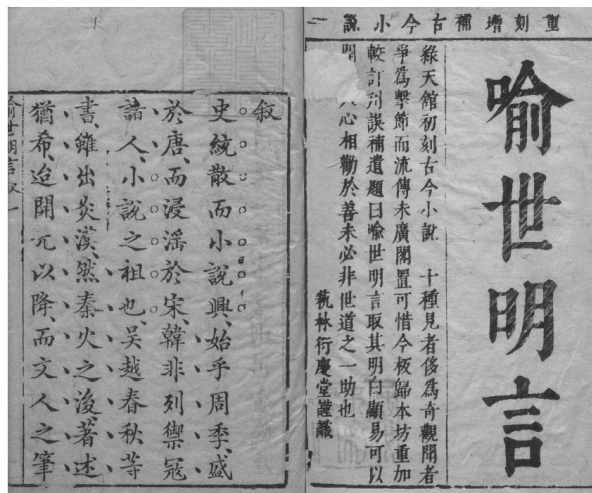 重刻增補古今小說一
喻世明言
綠天館初刻古今小說 十種見者侈為奇觀聞者
爭為擊節而流傳未廣閣置可惜今板歸本坊重加
較訂刋誤補遺題曰喻世明言取其明白顯易可以
開 人心相勸於善未必非世道之一助也
藝林衍慶堂謹識
敘
史統散而小說興始乎周季盛
於唐而浸淫於宋韓非列禦寇
諸人小說之祖也吳越春秋等
書雖出炎漢然秦火之後著述
猶希迨開元以降而文人之筆
喻世明言敘一